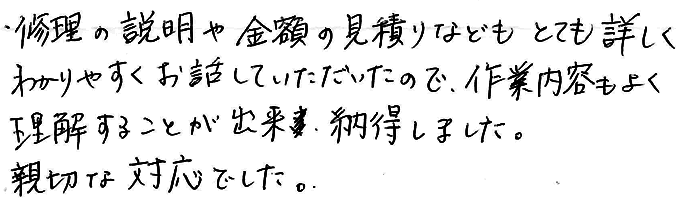 ・修理の説明や金額の見積りなどもとても詳しく
わかりやすくお話していただいたので、作業内容もよく
理解することが出来、納得しました。
親切な対応でした。